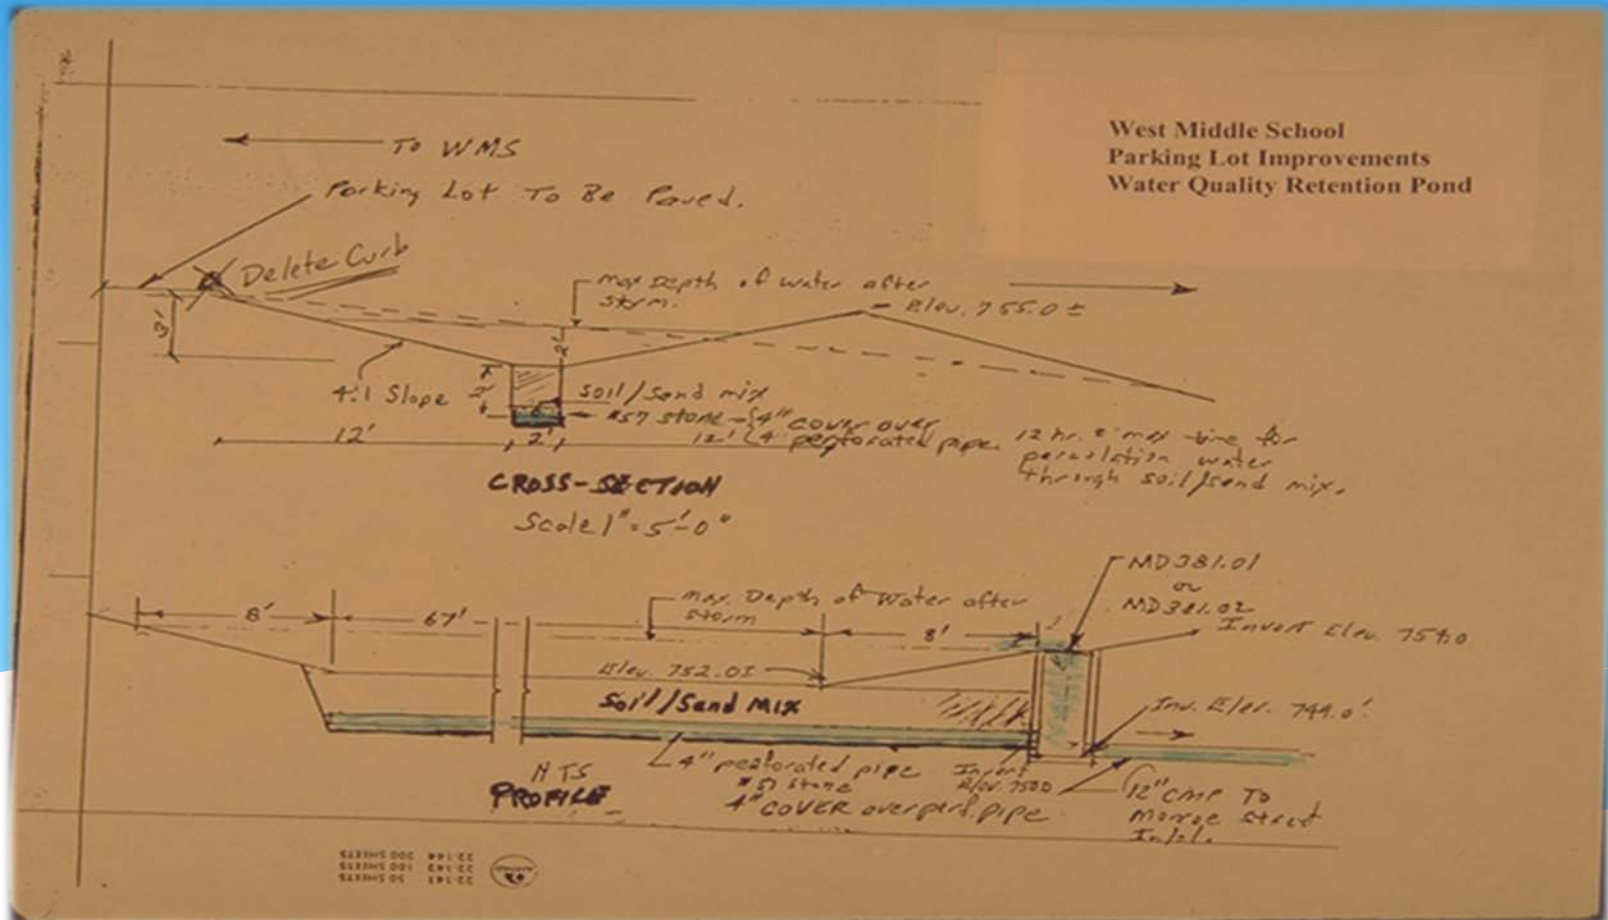 West Middle School
Parking Lot Improvements
Water Quality Retention Pond
To WMS
Parking Lot To Be Paved.
Delete Curb
max Depth of water after
storm.
Elev. 755.0 ±
3'
2'
4:1 Slope
2'
soil/sand mix
#57 stone - 4" cover over
4" perforated pipe
12'
2'
12'
12 hr. ± max time for
percolation water
through soil/sand mix.
CROSS-SECTION
Scale 1" = 5'-0"
MD381.01
or
MD381.02
8'
67'
max. Depth of Water after
storm
8'
Invert Elev.
Elev. 752.0±
Soil/Sand Mix
Inv. Elev.
4" perforated pipe
#57 stone
4" COVER over perf. pipe
Invert
Elev. 750.0
12" CMP To
Monroe Street
Inlet.
NTS
PROFILE
22-141 50 SHEETS
22-142 100 SHEETS
22-144 200 SHEETS